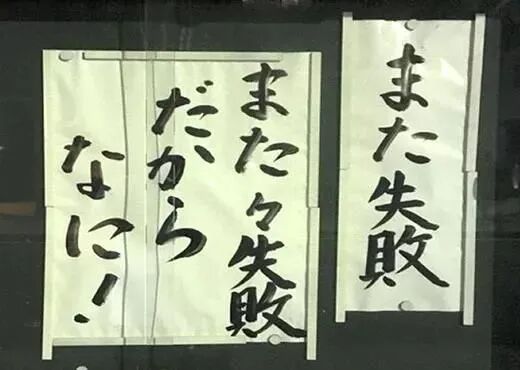 また失敗
また々失敗
だから
なに!